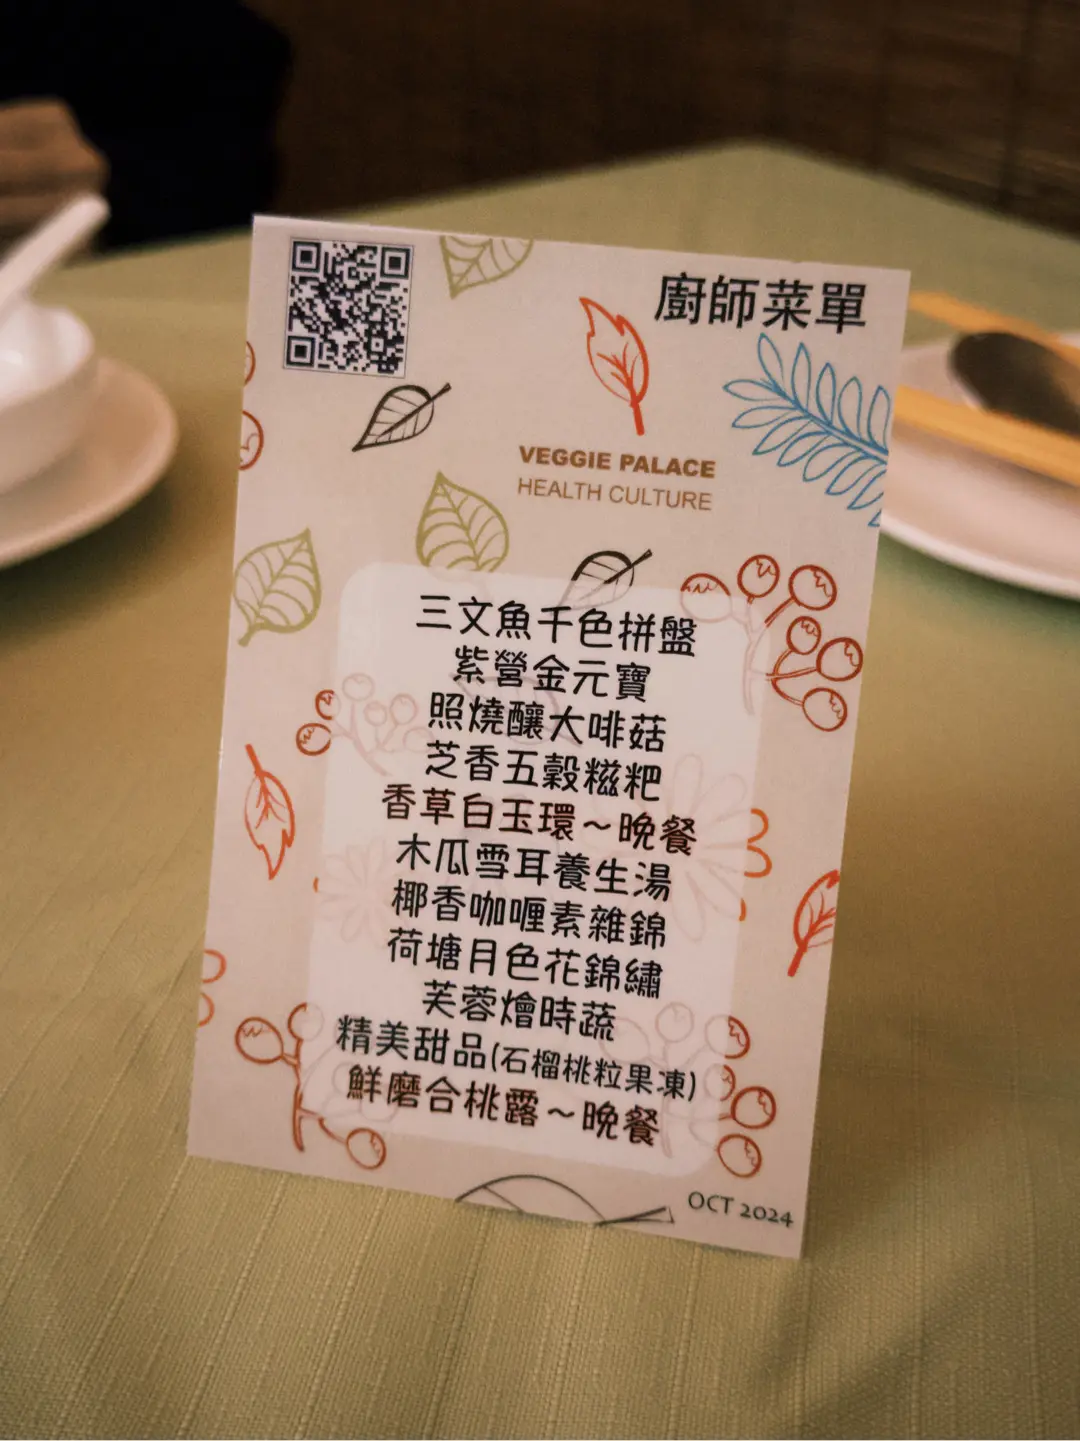 廚師菜單
VEGGIE PALACE
HEALTH CULTURE
三文魚千色拼盤
紫營金元寶
照燒釀大啡菇
芝香五穀糍粑
香草白玉環～晚餐
木瓜雪耳養生湯
椰香咖喱素雜錦
荷塘月色花錦繡
芙蓉燴時蔬
精美甜品(石榴桃粒果凍)
鮮磨合桃露～晚餐
OCT 2024